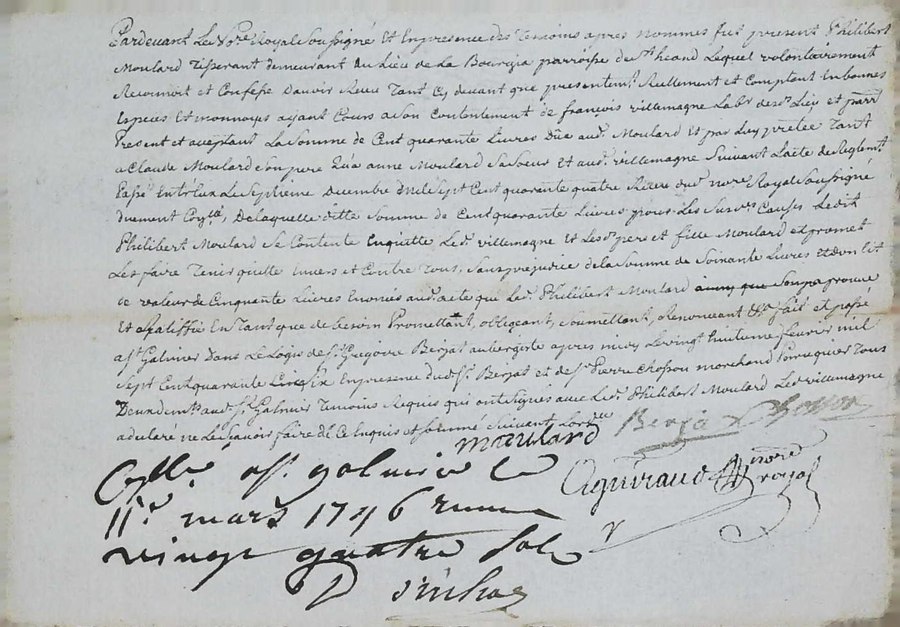 Pardevant Le No.re Royal Soussigné Et En presence des Temoins apres nommes fut present Philibert
Moulard Tisserant demeurant Au Lieu de La Bourgia parroisse de St heand Lequel volontairement
Reconnoit et Confesse Davoir Receu Tant Cy devant que presentemt Reellement et Comptant En bonnes
Especes et monnoyes ayant Cours a Son Contentement de françois villemagne Labr de sd Lieu et parr
Present et aceptant La Somme de Cent quarante Livres Düe aud. Moulard et par Luy pretée Tant
a Claude Moulard Son pere Qu'a anne Moulard Sa Soeur Et aud. villemagne Suivant L'acte de Reglemt
Passé Entr'Eux Le Septieme Decembre Mil Sept Cent quarante quatre Receu dud. nore Royal Soussigné
Duement Coyllé, De laquelle ditte Somme de Cent quarante Livres pour Les Susd. Causes Ledit
Philibert Moulard Se Contente En quitte Led. villemagne Et Lesd. pere et fille Moulard et promet
Les faire Tenir quitte Envers et Contre Tous, Sans prejudice de la Somme de Soixante Livres et d'un Lit
de valeur de Cinquante Livres Enoncés aud. acte que Led. Philibert Moulard
Et Ratiffie En Tant que de besoin Promettant, obligeant, Soumettant, Renonceant &a fait et passé
a St Galmier Dans Le Logis de Sr Gregoire Berjat aubergiste apres midy Le vingt huitieme fevrier mil
Sept Cent quarante Cinq En presence dud. Sr. Berjat et de Sr Pierre Chosson marchand Perruquier Tous
Deux dem.t aud. St Galmier Temoins Requis qui ont Signes avec Led. Philibert Moulard Led. villemagne
a declaré ne Le Sçavoir faire de Ce Enquis et Sommé Suivant Lord.ce
moulard Berjat Chosson
Cyllé a St galmier Le
11e mars 1746 recu
vingt quatre sols
Aguiraud nore royal